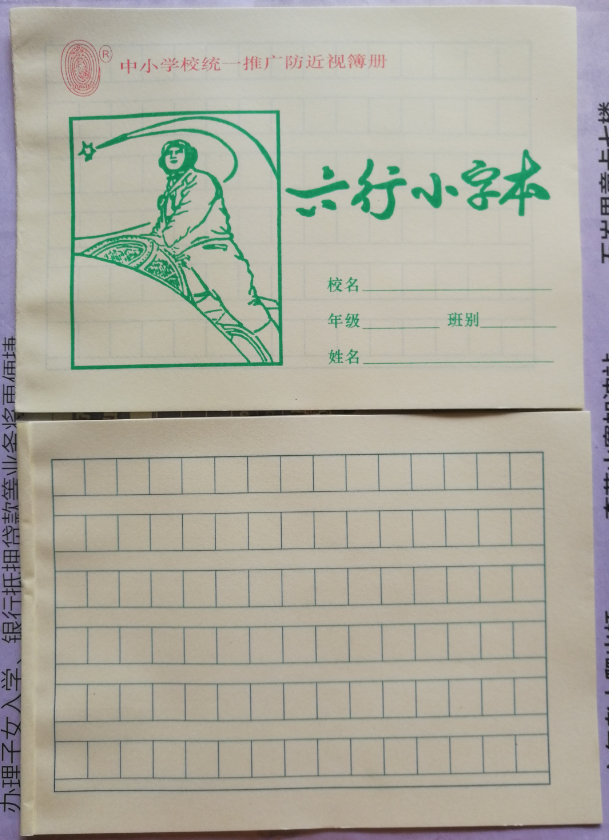 ®
中小学校统一推广防近视簿册
六行小字本
校名
年级 班别
姓名
办理子女入学、银行抵押贷款等业务将更便捷